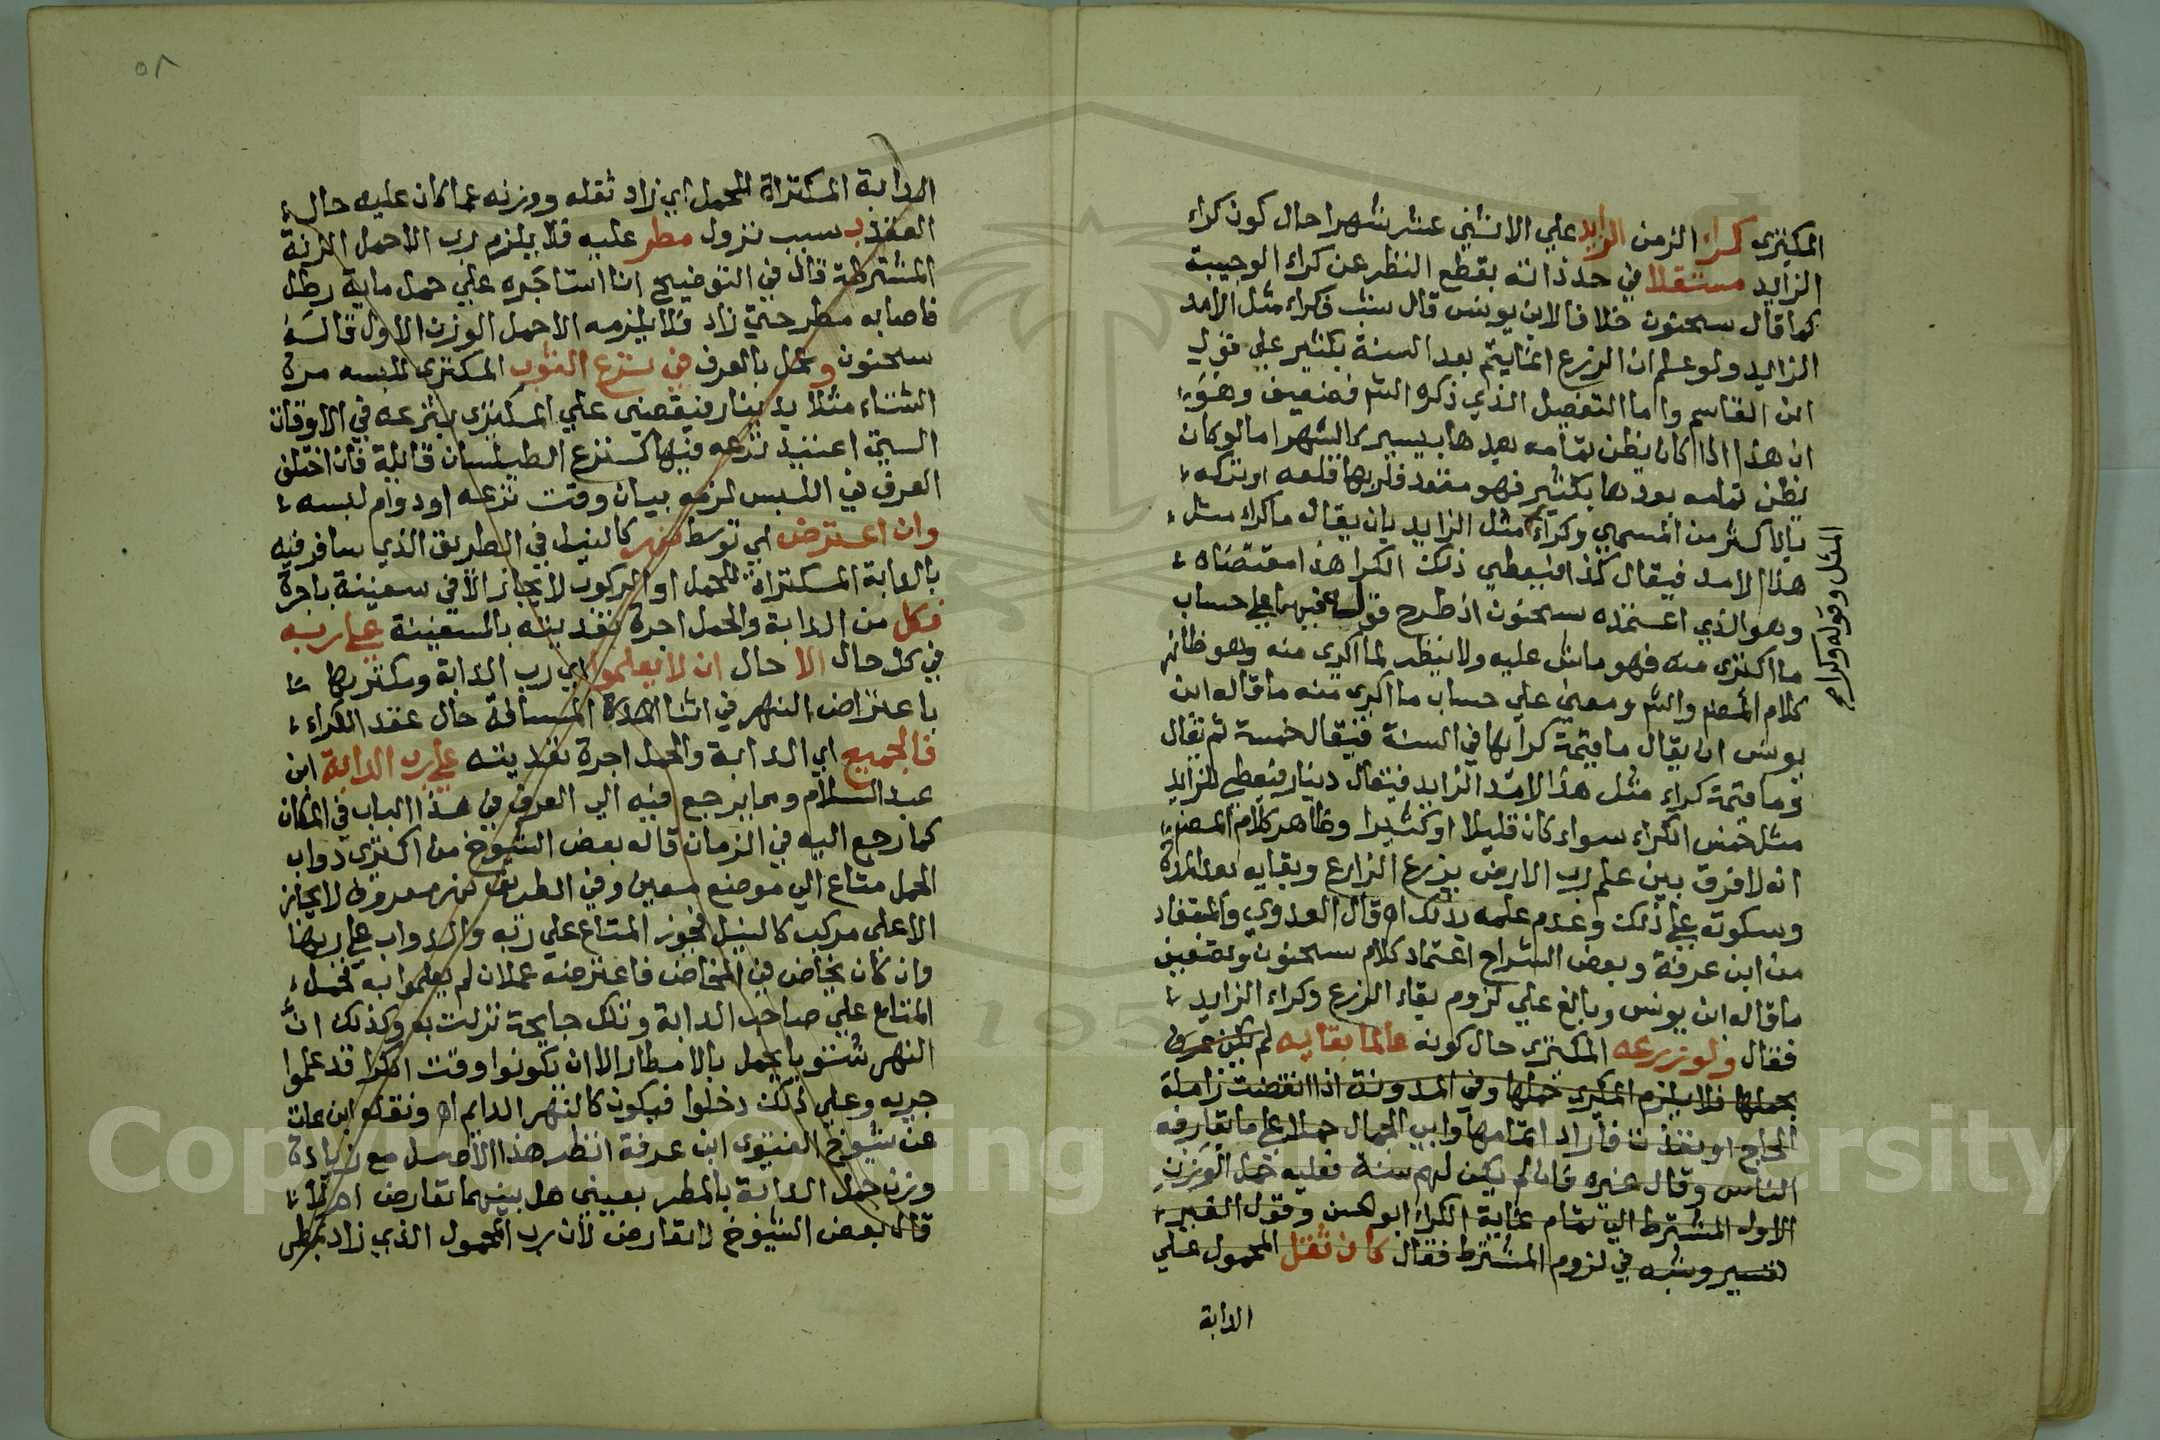 المكتري كراء الزمن الزايد علي الاثني عشر شهرا حال كون كراء
الزايد مستقلا في حد ذاته بقطع النظر عن كراء الوجيبة
كما قال سحنون خلافا لابن يونس قال شب فكراء مثل الأمد
الزايد ولو علم ان الزرع انما يتم بعد السنة بكثير علي قول
ابن القاسم واما التفصيل الذي ذكره الشم فضعيف وهو
ان هذا اذا كان يظن تمامه بعدها بيسير كالشهر اما لو كان
يظن تمامه بعدها بكثير فهو مفقود فلربها قلعه او تركه
بالاكثر من المسمي وكراء مثل الزايد بان يقال ما كراء مثل
هذا الامد فيقال كذا فيعطي ذلك الكرا هذا مقتضاه
وهو الذي اعتمده سحنون اذ طرح قوله فيهما علي حساب
ما اكتري منه فهو ماش عليه ولا ينظر لما اكري منه وهو ظاهر
كلام المصنم والشم ومعني علي حساب ما اكري منه ما قاله ابن
يونس ان يقال ما قيمة كرايها في السنة فيقال خمسة ثم يقال
وما قيمة كراء مثل هذا الامد الزايد فيقال دينار فيعطي للزايد
مثل خمس الكراء سواء كان قليلا او كثيرا وظاهر كلام المصنم
انه لا فرق بين علم رب الارض بزرع الزارع وبقايه بعد المدة
وسكوته علي ذلك وعدم علمه بذلك اه قال العدوي والمستفاد
من ابن عرفة وبعض الشراح اعتماد كلام سحنون وتضعيف
ما قاله ابن يونس وبالغ علي لزوم بقاء الزرع وكراء الزايد
فقال ولو زرعه المكتري حال كونه عالما بقايه لم يكن عرف
بحملها فلا يلزم المكري حملها وفي المدونة اذا انقضت زاملة
الحاج او نفذت فأراد اتمامها وابي الجمال حملا علي ما يعارفه
الناس وقال غيره فان لم يكن لهم سنة فعليه حمل الوزن
الاول المشترط الي تمام غاية الكراء ابو الحسن وقول الغير
تفسير وشبه في لزوم المشترط فقال كان ثقل المحمول علي
الدابة
المثل وقوله وكراء
٥٨
الدابة المكتراة للحمل اي زاد ثقله ووزنه عما كان عليه حال
العقد بسبب نزول مطر عليه فلا يلزم رب الاحمل الزنة
المشترطة قال في التوضيح اذا استاجره علي حمل ماية رطل
فاصابه مطر حتي زاد فلا يلزمه الاحمل الوزن الاول قاله
سحنون وعمل بالعرف في نزع الثوب المكتري للبسه مدة
الشتاء مثلا بدينار فيقضي علي المكتري بنزعه في الاوقات
التي اعتيد نزعه فيها كنزع الطيلسان قايلة فان اختلف
العرف في اللبس لزمه بيان وقت نزعه او دوام لبسه
وان اعترض اي توسط نهر كالنيل في الطريق الذي سافر فيه
بالدابة المكتراة للحمل او الركوب لا يجاز الا في سفينة باجرة
فكل من الدابة والحمل اجرة تعديته بالسفينة علي ربه
في كل حال الا حال ان لا يعلموا اي رب الدابة ومكتريها
باعتراض النهر في اثناء المسافة حال عقد الكراء
فالجميع اي الدابة والحمل اجرة تعديته علي رب الدابة ابن
عبد السلام ومما يرجع فيه الي العرف في هذا الباب في المكان
كما رجع اليه في الزمان قاله بعض الشيوخ من اكتري دواب
لحمل متاع الي موضع معين وفي الطريق نهر معروف لا يجاز
الا علي مركب كالنيل فجوز المتاع علي ربه والدواب علي ربها
وان كان يخاض في المخاض فاعترضه حملان لم يعلموا به فحمل
المتاع علي صاحب الدابة وتلك جايحة نزلت به وكذلك ان
النهر شتويا يحمل بالامطار الا ان يكونوا وقت الكرا قد علموا
جريه وعلي ذلك دخلوا فيكون كالنهر الدايم اه ونقله ابن عات
عن شيوخ الفتوي ابن عرفة انظر هذا الاصل مع زيادة
وزن حمل الدابة بالمطر يعيني هل بينهما تعارض اه
قال بعض الشيوخ لا تعارض لأن رب المحمول الذي زاد بمطر